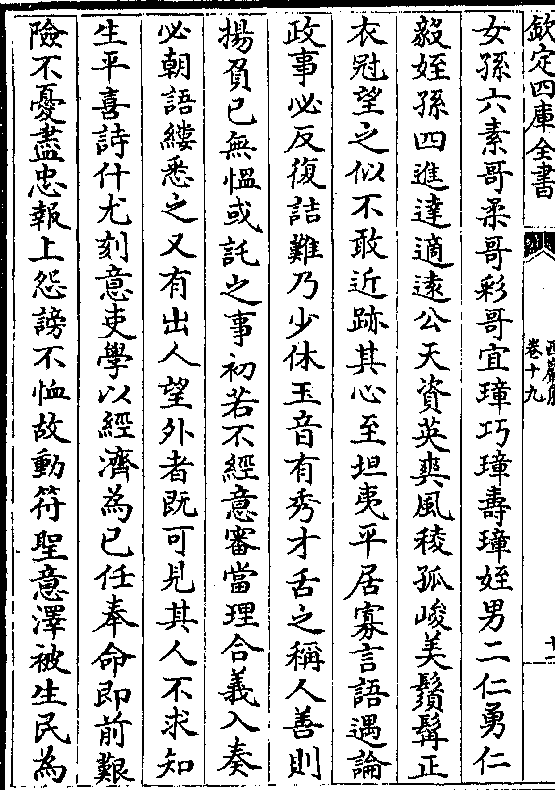 欽定四庫全書
卷十九
女孫六素哥柔哥彩哥宜璋巧璋壽璋姪男二仁勇仁
毅姪孫四進達適遠公天資英爽風稜孤峻美鬚髯正
衣冠望之似不敢近跡其心至坦夷平居寡言語遇論
政事必反復詰難乃少休玉音有秀才舌之稱人善則
揚負已無慍或託之事初若不經意審當理合義入奏
必朝語縷悉之又有出人望外者既可見其人不求知
生平喜詩什尤刻意吏學以經濟為已任奉命即前艱
險不憂盡忠報上怨謗不恤故動符聖意澤被生民為